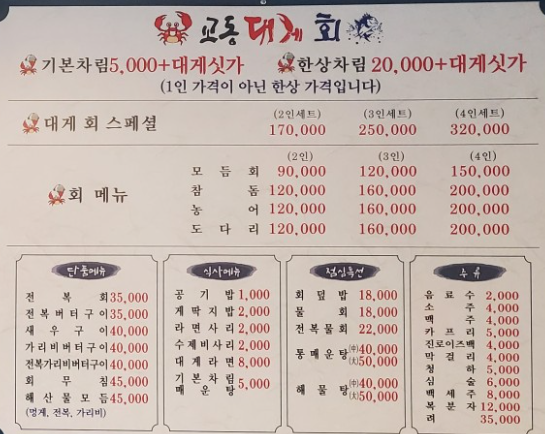 교동 대게 회
기본차림5,000+대게싯가 한상차림 20,000+대게싯가
(1인 가격이 아닌 한상 가격입니다)
(2인세트) (3인세트) (4인세트)
대게 회 스페셜 170,000 250,000 320,000
(2인) (3인) (4인)
회 메뉴
모듬회 90,000 120,000 150,000
참돔 120,000 160,000 200,000
농어 120,000 160,000 200,000
도다리 120,000 160,000 200,000
단품메뉴
전복회 35,000
전복버터구이 35,000
새우구이 40,000
가리비버터구이 40,000
전복가리비버터구이 40,000
회무침 45,000
해산물모듬 45,000
(멍게, 전복, 가리비)
식사메뉴
공기밥 1,000
게딱지밥 2,000
라면사리 2,000
수제비사리 2,000
대게라면 8,000
기본차림
매운탕 5,000
점심특선
회덮밥 18,000
물회 18,000
전복물회 22,000
통매운탕 (中)40,000
(大)50,000
해물탕 (中)40,000
(大)50,000
주류
음료수 2,000
소주 4,000
맥주 4,000
카프리 5,000
진로이즈백 4,000
막걸리 4,000
청하 5,000
심술 6,000
백세주 8,000
복분자 12,000
려 35,000